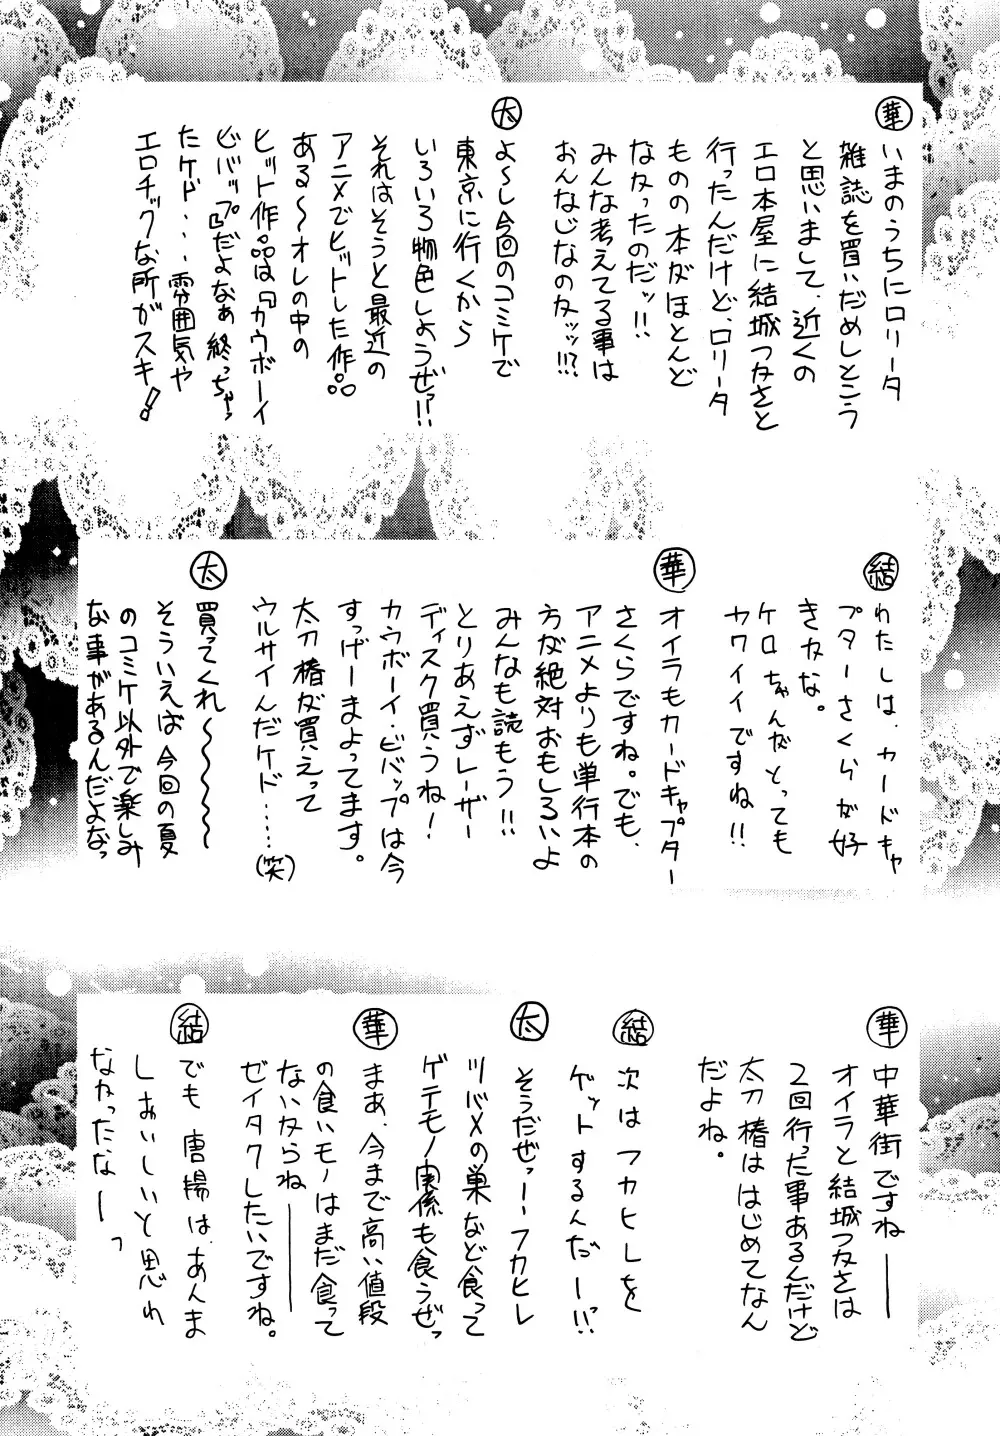 華
いまのうちにロリータ
雑誌を買いだめしとこう
と思いまして、近くの
エロ本屋に結城つかさと
行ったんだけど、ロリータ
ものの本がほとんど
なかったのだッ!!
みんな考えてる事は
おんなじなのカッッ!!?
太
よ〜し今回のコミケで
東京に行くから
いろいろ物色しようぜっ!?
それはそうと最近の
アニメでヒットした作品
ある〜オレの中の
ヒット作品は『カウボーイ
ビバップ』だよなぁ終っちゃっ
たケド...雰囲気や
エロチックな所がスキ!
結
わたしは、カードキャ
プターさくらが好
きかな。
ケロちゃんがとっても
カワイイですね!!
華
オイラもカードキャプター
さくらですね。でも、
アニメよりも単行本の
方が絶対おもしろいよ
みんなも読もう!!
とりあえずレーザー
ディスク買うね!
カウボーイ・ビバップは今
すっげーまよってます。
太刀椿が買えって
ウルサイんだケド......(笑)
太
買ってくれ〜〜〜〜〜
そういえば今回の夏
のコミケ以外で楽しみ
な事があるんだよなっ
華
中華街ですね——
オイラと結城つかさは
2回行った事あるんだけど
太刀椿ははじめてなん
だよね。
結
次はフカヒレを
ゲットするんだーっ!!
太
そうだぜっーフカヒレ
ツバメの巣など食って
ゲテモノ関係も食うぜっ
華
まあ、今まで高い値段
の食いモノはまだ食って
ないからね———
ゼイタクしたいですね。
結
でも唐揚は、あんま
しおいしいと思わ
なかったなーっ